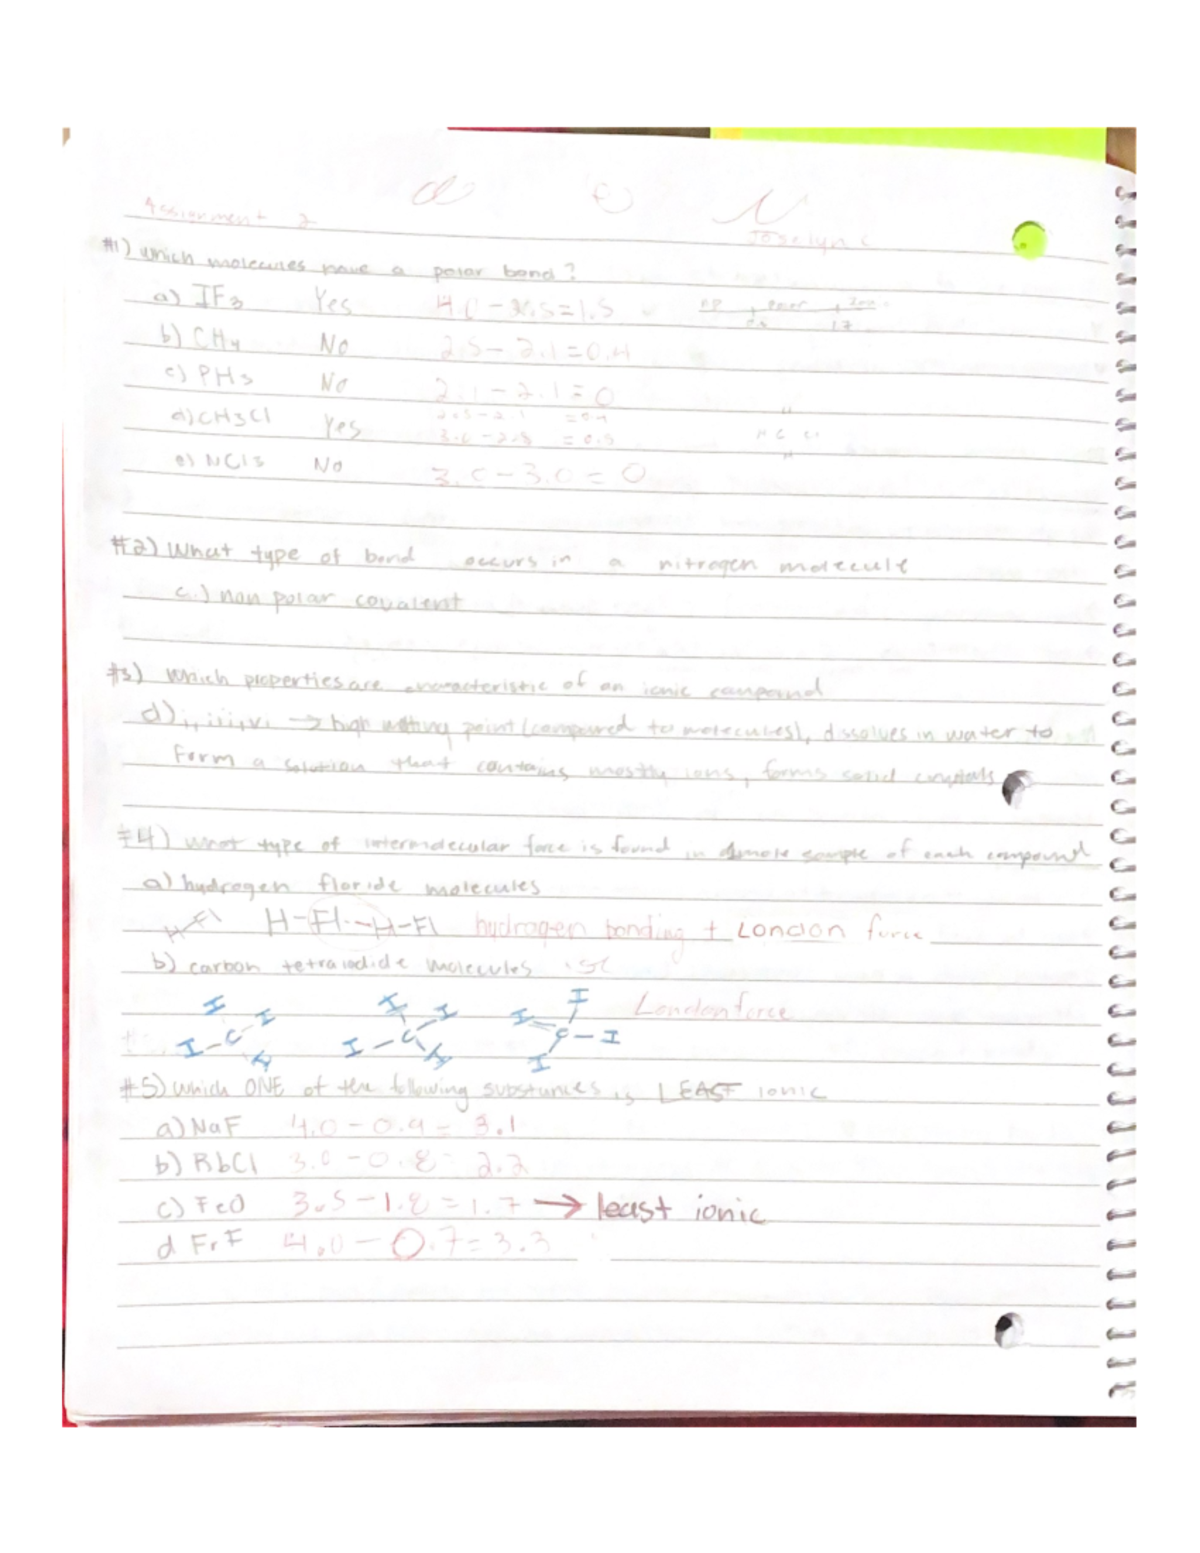 Assignment 2
Joselyn C
#1) which molecules have a polar bond?
a) IF3 Yes 4.0 - 2.5 = 1.5
b) CH4 No 2.5 - 2.1 = 0.4
c) PH3 No 2.1 - 2.1 = 0
d) CH3Cl Yes 2.5 - 2.1 = 0.4
3.0 - 2.5 = 0.5
e) NCl3 No 3.0 - 3.0 = 0
#2) What type of bond occurs in a nitrogen molecule
c.) non polar covalent
#3) Which properties are characteristic of an ionic compound
d) i, iii, vi → high melting point (compared to molecules), dissolves in water to
form a solution that contains mostly ions, forms solid crystals
#4) what type of intermolecular force is found in sample of each compound
a) hydrogen floride molecules
H-Fl H-Fl---H-Fl hydrogen bonding + London force
b) carbon tetraiodide molecules
I I I I I
I-C I-C I=C-I London force
I I I
#5) which ONE of the following substances is LEAST ionic
a) NaF 4.0 - 0.9 = 3.1
b) RbCl 3.0 - 0.8 = 2.2
c) FeO 3.5 - 1.8 = 1.7 → least ionic
d FrF 4.0 - 0.7 = 3.3